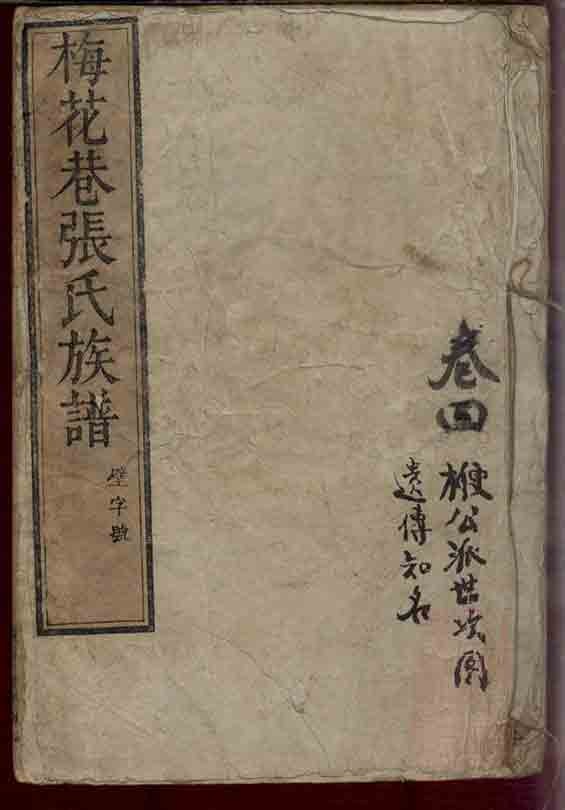 卷四
公派世次圖
遺傳知名
梅花巷張氏族譜
字號